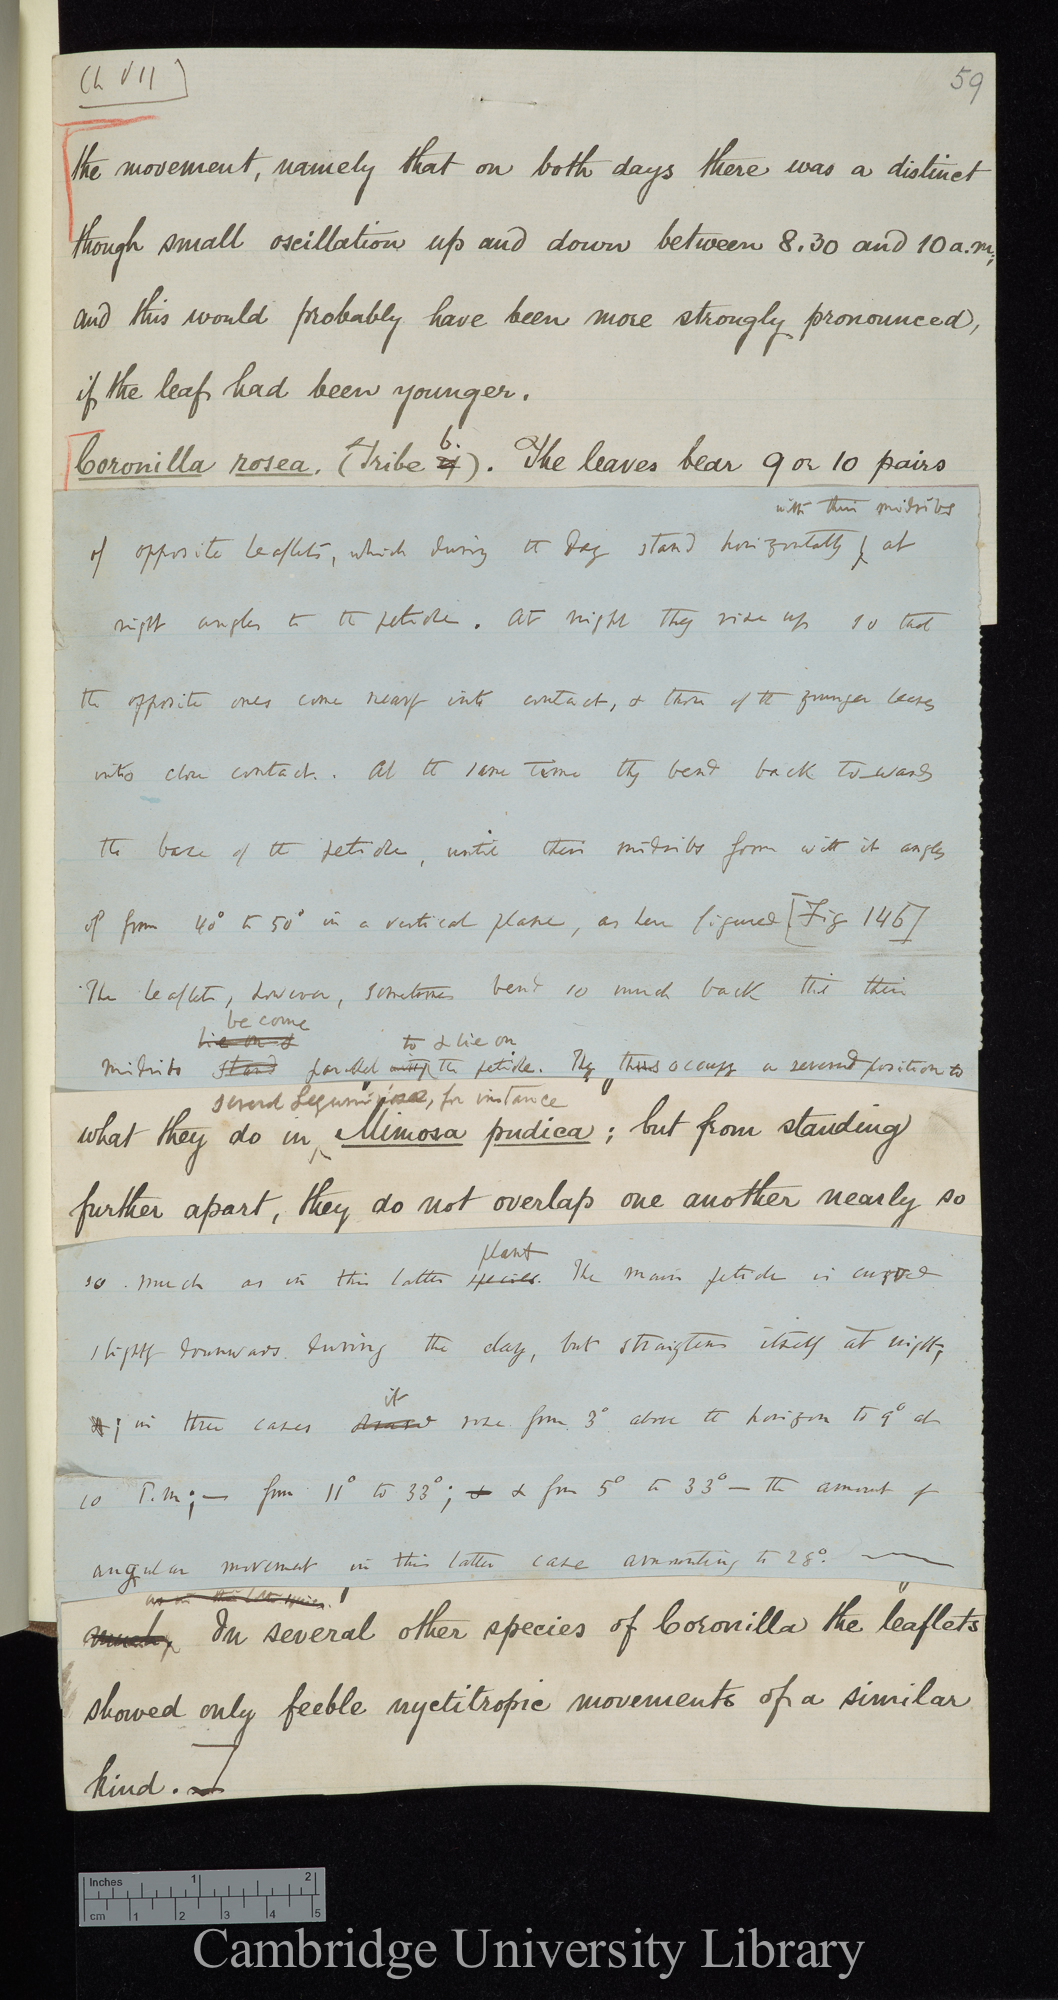 Ch VII
59
the movement, namely that on both days there was a distinct
though small oscillation up and down between 8.30 and 10 a.m;
and this would probably have been more strongly pronounced,
if the leaf had been younger.
6.
Coronilla rosea. (Tribe 4). The leaves bear 9 or 10 pairs
with their midribs
of opposite leaflets, which during the day stand horizontally, at
right angles to the petiole. At night they rise up so that
the opposite ones come nearly into contact, & those of the younger leaves
into close contact. At the same time they bend back towards
the base of the petiole, until their midribs form with it angles
of from 40° to 50° in a vertical plane, as here figured [Fig 146]
The leaflets, however, sometimes bend so much back that their
become
lie on &
to & lie on
midribs stand parallel with the petiole. They thus occupy a reversed position to
several Leguminosae, for instance
what they do in Mimosa pudica; but from standing
further apart, they do not overlap one another nearly so
plant
so much as in this latter species. The main petiole is curved
slightly downwards during the day, but straightens itself at night;
it
&; in three cases rose from 3° above the horizon to 9° at
10 P.m; — from 11° to 33°; & & from 5° to 33° — the amount of
angular movement in this latter case amounting to 28°.
as in this latter species.
much. In several other species of Coronilla the leaflets
showed only feeble nyctitropic movements of a similar
kind.
Inches 1 2
cm 1 2 3 4 5
Cambridge University Library